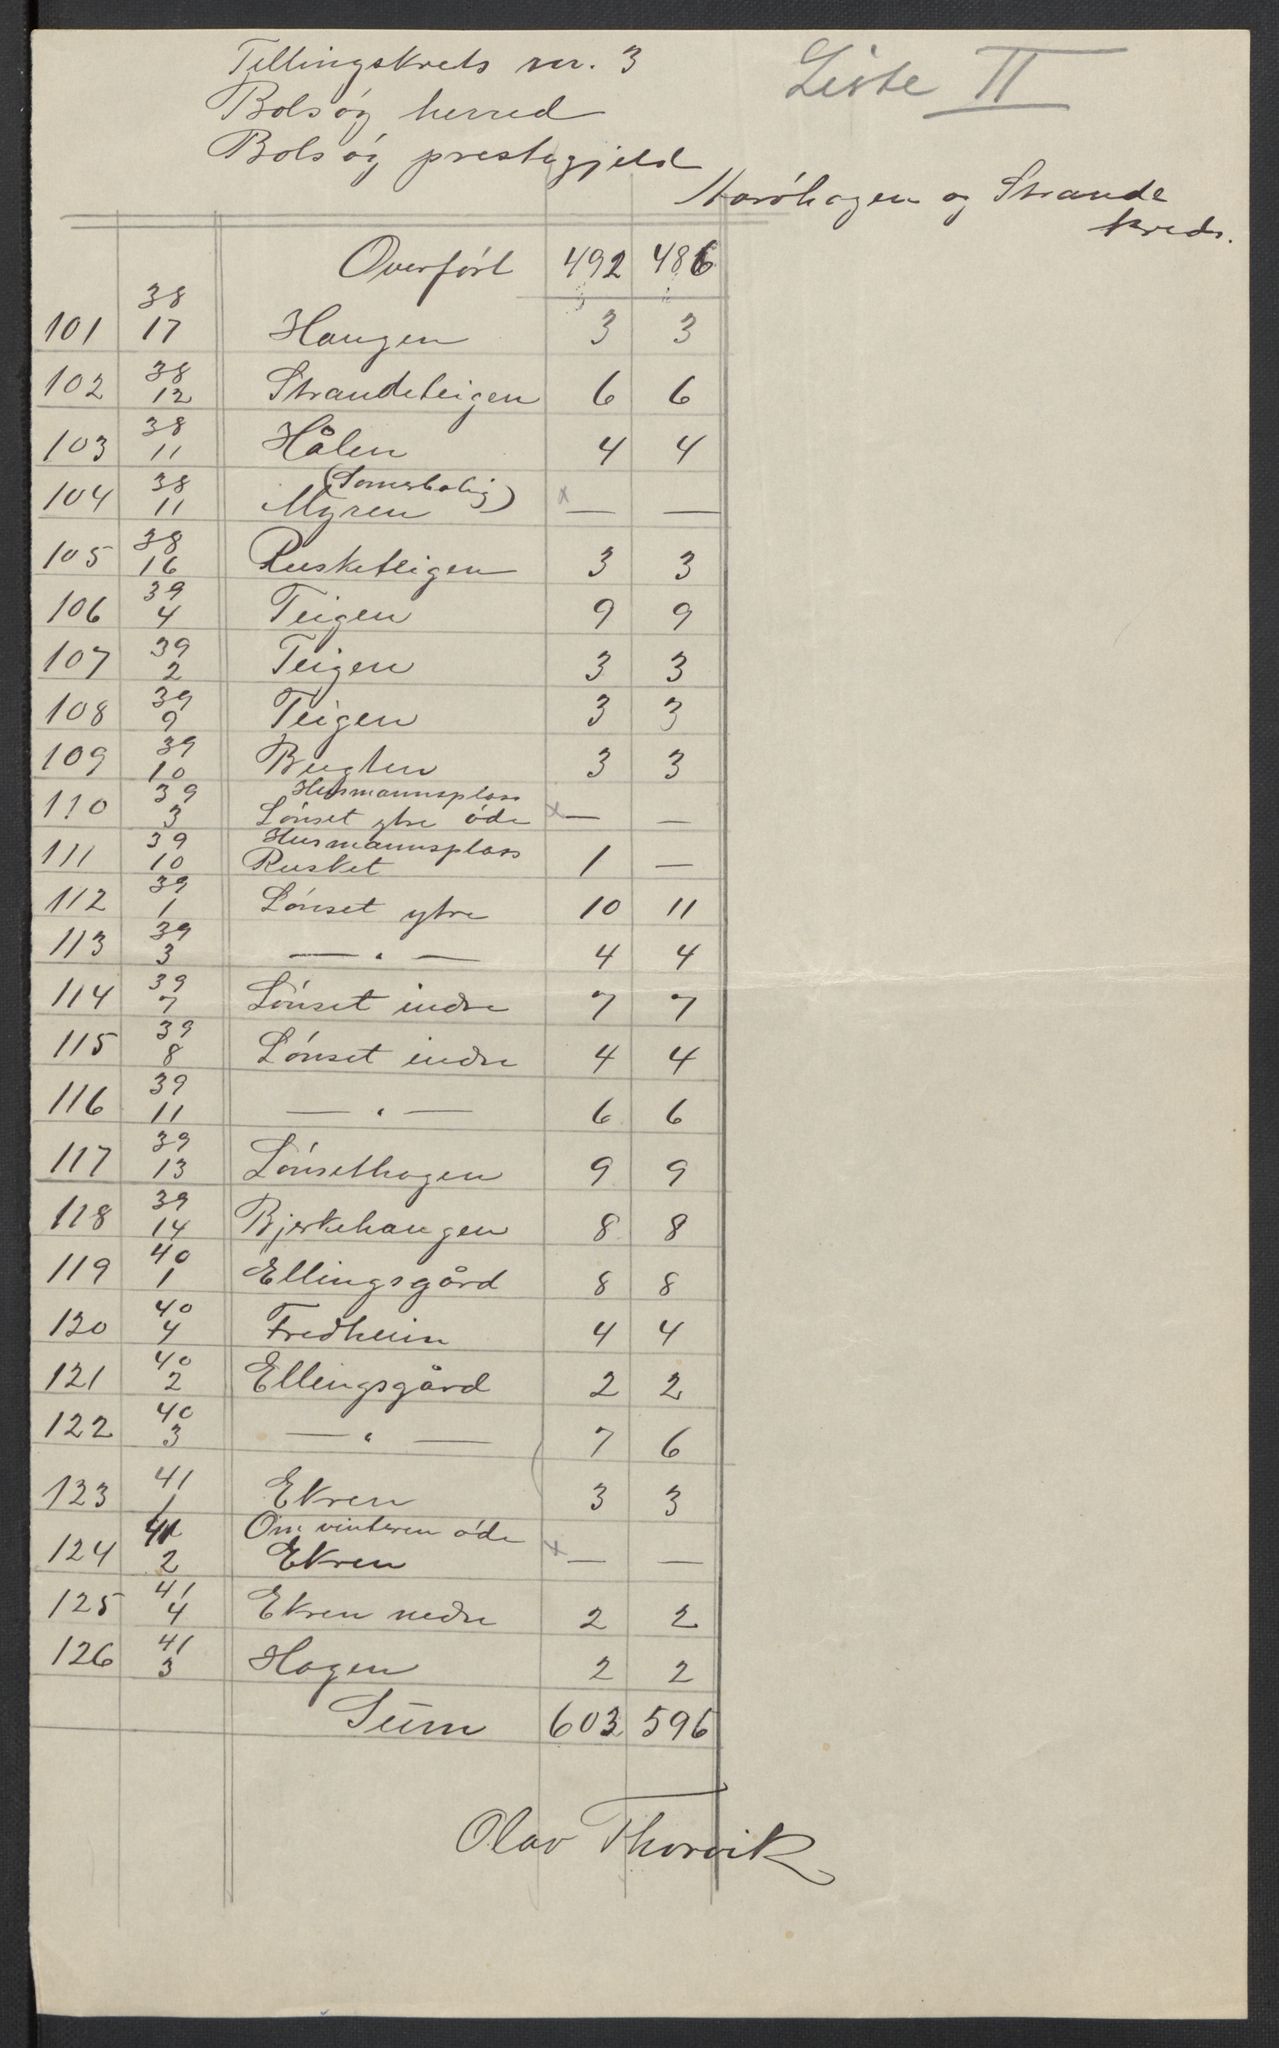 Tellingskrets nr. 3
Liste II
Bolsöy herred
Bolsöy prestegjeld
og Strande
kreds.
Overført 492 486
101 38/17 Haugen 3 3
102 38/12 Strandeteigen 6 6
103 38/11 Hålen 4 4
104 38/11 (Somerbolig) Myren x — —
105 38/16 Rusketeigen 3 3
106 39/4 Teigen 9 9
107 39/2 Teigen 3 3
108 39/9 Teigen 3 3
109 39/10 Bugten 3 3
110 39/3 Husmannsplass
Lönset ytre öde x — —
111 39/10 Husmannsplass
Rusket 1 —
112 39/1 Lönset ytre 10 11
113 39/3 — " — 4 4
114 39/7 Lönset indre 7 7
115 39/8 Lönset indre 4 4
116 39/11 — " — 6 6
117 39/13 Lönsethagen 9 9
118 39/14 Bjerkehaugen 8 8
119 40/1 Ellingsgård 8 8
120 40/4 Fredheim 4 4
121 40/2 Ellingsgård 2 2
122 40/3 — " — 7 6
123 41/1 Ekren 3 3
124 41/2 Om vinteren öde
Ekren x — —
125 41/4 Ekren nedre 2 2
126 41/3 Hagen 2 2
Sum 603 596
Olav Thorvik